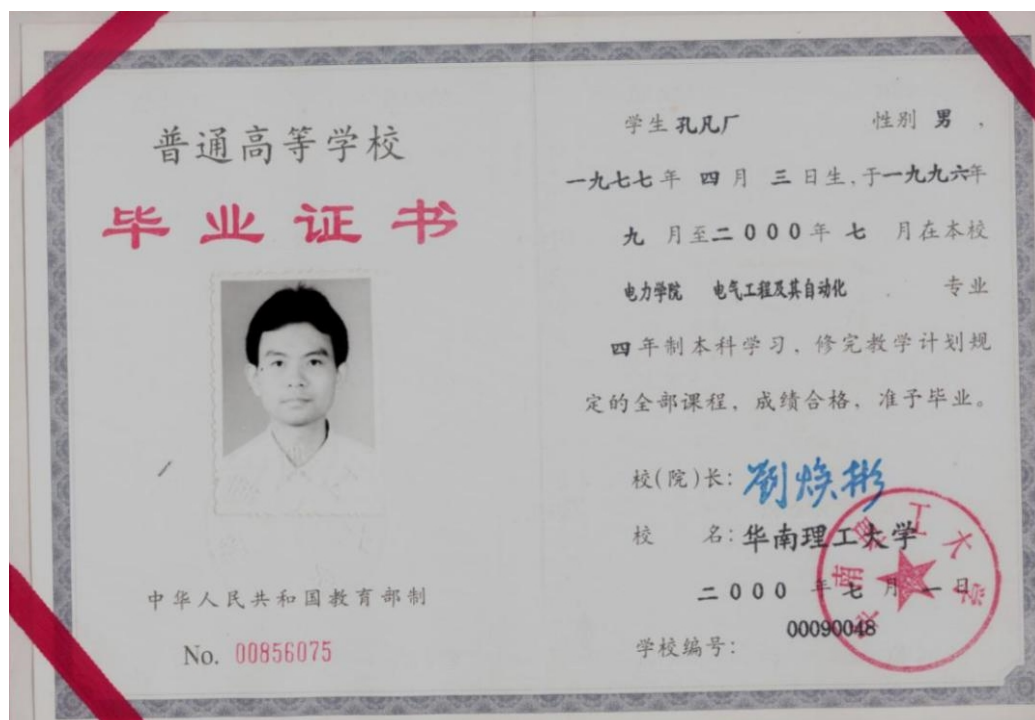 普通高等学校
毕业证书
中华人民共和国教育部制
No. 00856075
学生 孔凡厂 性别 男 ,
一九七七年 四 月 三 日生,于一九九六年
九 月至二000年 七 月在本校
电力学院 电气工程及其自动化 专业
四年制本科学习,修完教学计划规
定的全部课程,成绩合格,准予毕业。
校(院)长: 劉焕彬
校 名: 华南理工大学
二000 年 七 月 一 日
学校编号: 00090048
华南理工大学